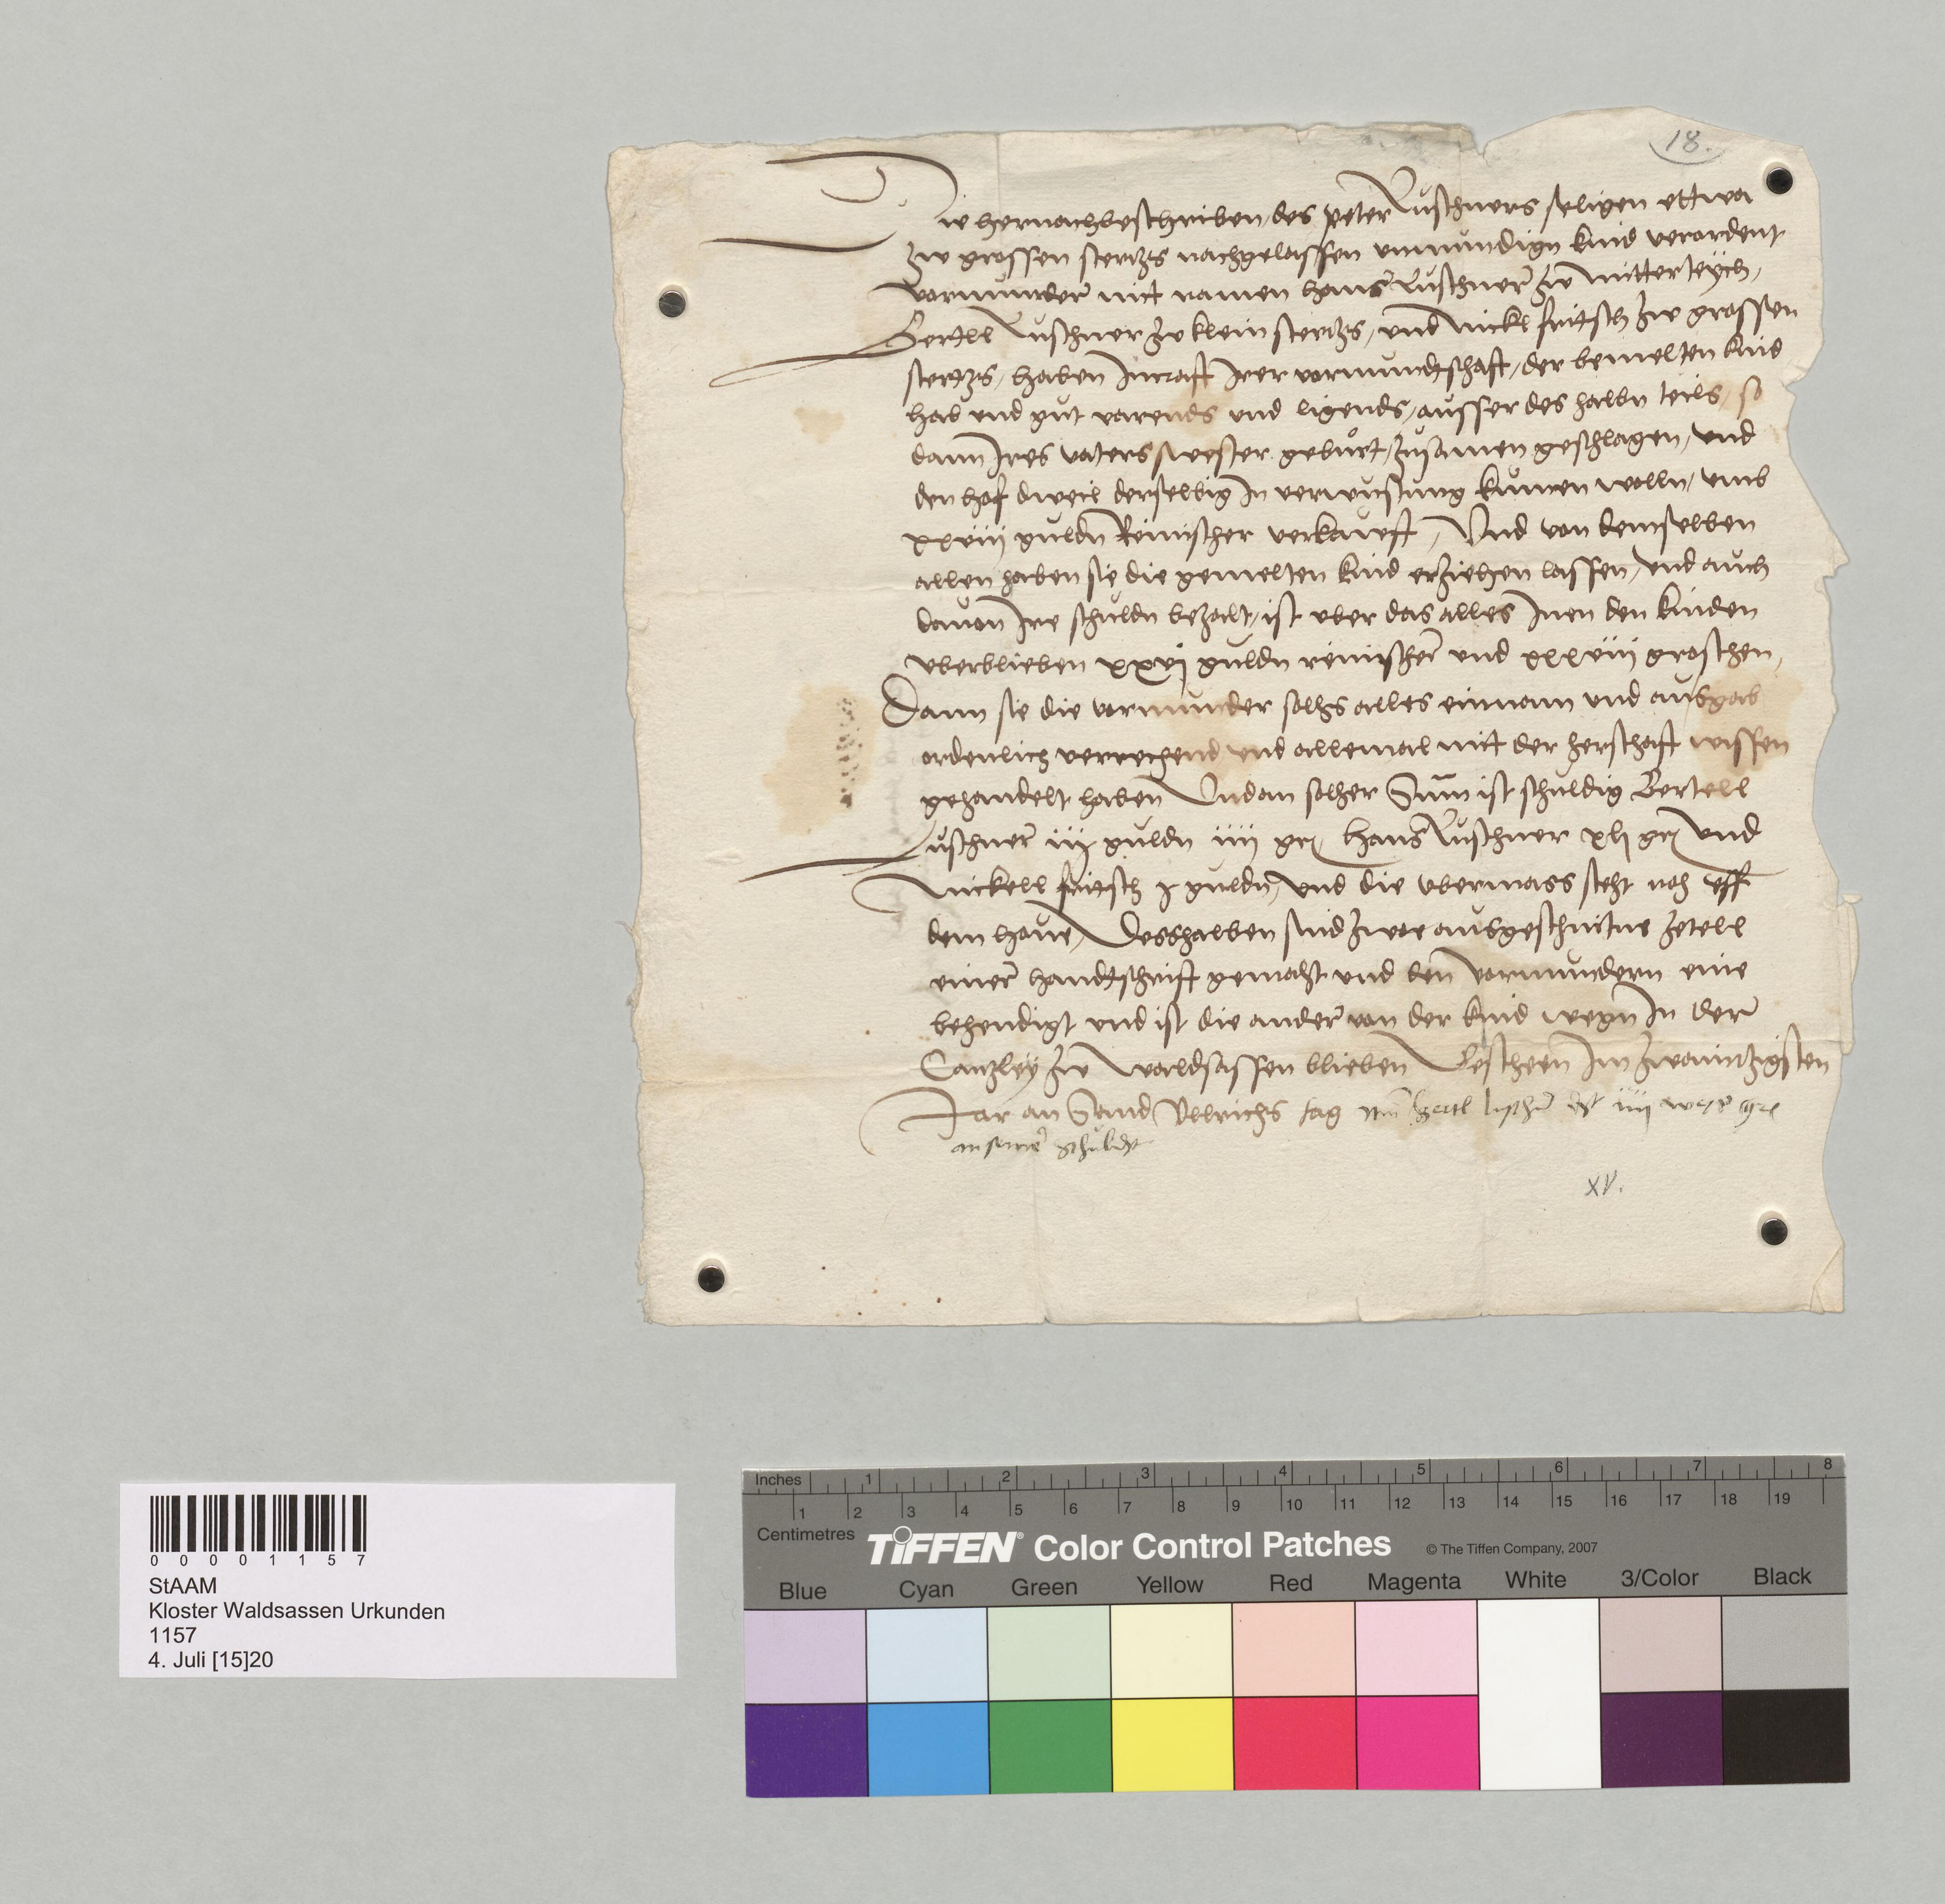 18.
Die hernachbeschriben des peter Luschners seligen ettwa
zw grossen stertzs nachgelassen unmundign kind verordent
vormunder mit namen hans Luschner zw mitterteych,
Bertll Luschner zw klein stertzs, und Nickl fritsch zw grossen
stertzs, haben Incraft Irer vormundtschaft, der bemelten kind
hab und gut varends und ligends, ausser des halbn teils, so
dann Ires vaters swester geburt, zusamen geschlagen, und
den hof dweil derselbig In verwustung kumen wolln, umb
xxviij guldn Reinischer verkaufft, Und von demselben
allen haben sie die gemelten kind erziehen lassen, und auch
davon Ire schuldn bezalt, ist uber das alles Inen den kinden
uberblieben xxvj guldn reinischer und xxxviij groschen,
Dann sie die vormunder solhs alles einnam und ausgab
ordenlich verrechend und allemal mit der herschaft wissen
gehandelt haben Und an solher Sum ist schuldig Bertell
Luschner iij guldn iiij gr, Hans Luschner xlj gr, und
Nickell fritsch x guldn, und die ubermass steht noh uff
dem hove, Desshalben sind zwue ausgeschnitne zetell
einer handtschrift gemacht und den vormundern eine
behendigt und ist die ander von der kind wegn In der
Canzley zw waldsassen blieben Gescheen Im zwaintzigsten
Jar an Sand Ullrichs tag Bertl iiij gr
an seiner schuldt
XV.
0 0 0 0 1 1 5 7
StAAM
Kloster Waldsassen Urkunden
1157
4. Juli [15]20
Inches 1 2 3 4 5 6 7 8
1 2 3 4 5 6 7 8 9 10 11 12 13 14 15 16 17 18 19
Centimetres
TIFFEN® Color Control Patches © The Tiffen Company, 2007
Blue Cyan Green Yellow Red Magenta White 3/Color Black